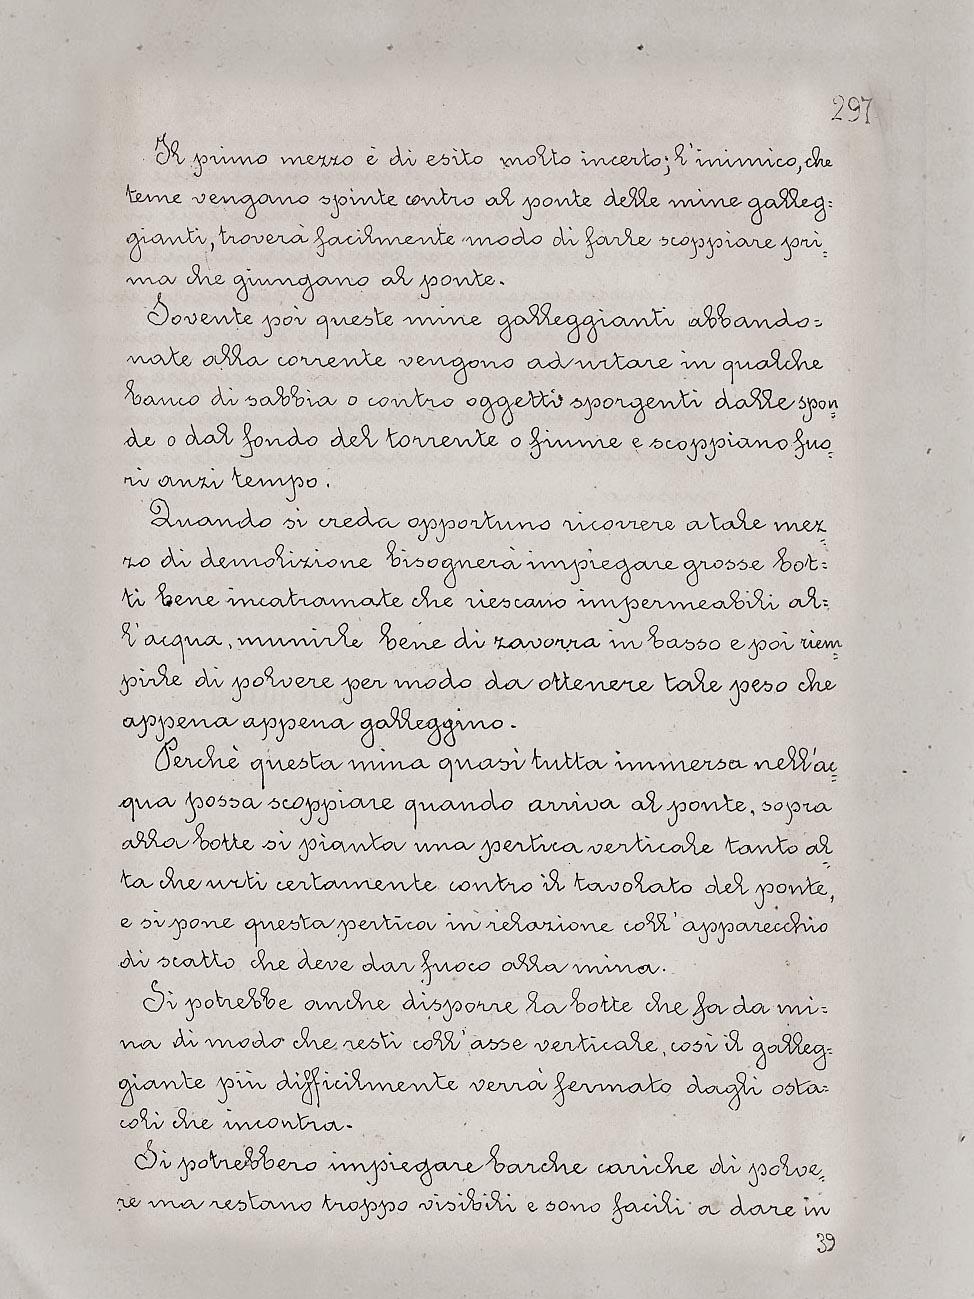 297
Il primo mezzo è di esito molto incerto; l'inimico, che
teme vengano spinte contro al ponte delle mine galleg=
gianti, troverà facilmente modo di farle scoppiare pri=
ma che giungano al ponte.
Sovente poi queste mine galleggianti abbando=
nate alla corrente vengono ad urtare in qualche
banco di sabbia o contro oggetti sporgenti dalle spon=
de o dal fondo del torrente o fiume e scoppiano fuo=
ri anzi tempo.
Quando si creda opportuno ricorrere a tale mez=
zo di demolizione bisognerà impiegare grosse bot=
ti bene incatramate che riescano impermeabili al=
l'acqua, munirle bene di zavorra in basso e poi riem=
pirle di polvere per modo da ottenere tale peso che
appena appena galleggino.
Perchè questa mina quasi tutta immersa nell'ac=
qua possa scoppiare quando arriva al ponte, sopra
alla botte si pianta una pertica verticale tanto al=
ta che urti certamente contro il tavolato del ponte,
e si pone questa pertica in relazione coll'apparecchio
di scatto che deve dar fuoco alla mina.
Si potrebbe anche disporre la botte che fa da mi=
na di modo che resti coll'asse verticale, così il galleg=
giante più difficilmente verrà fermato dagli osta=
coli che incontra.
Si potrebbero impiegare barche cariche di polve=
re ma restano troppo visibili e sono facili a dare in
39